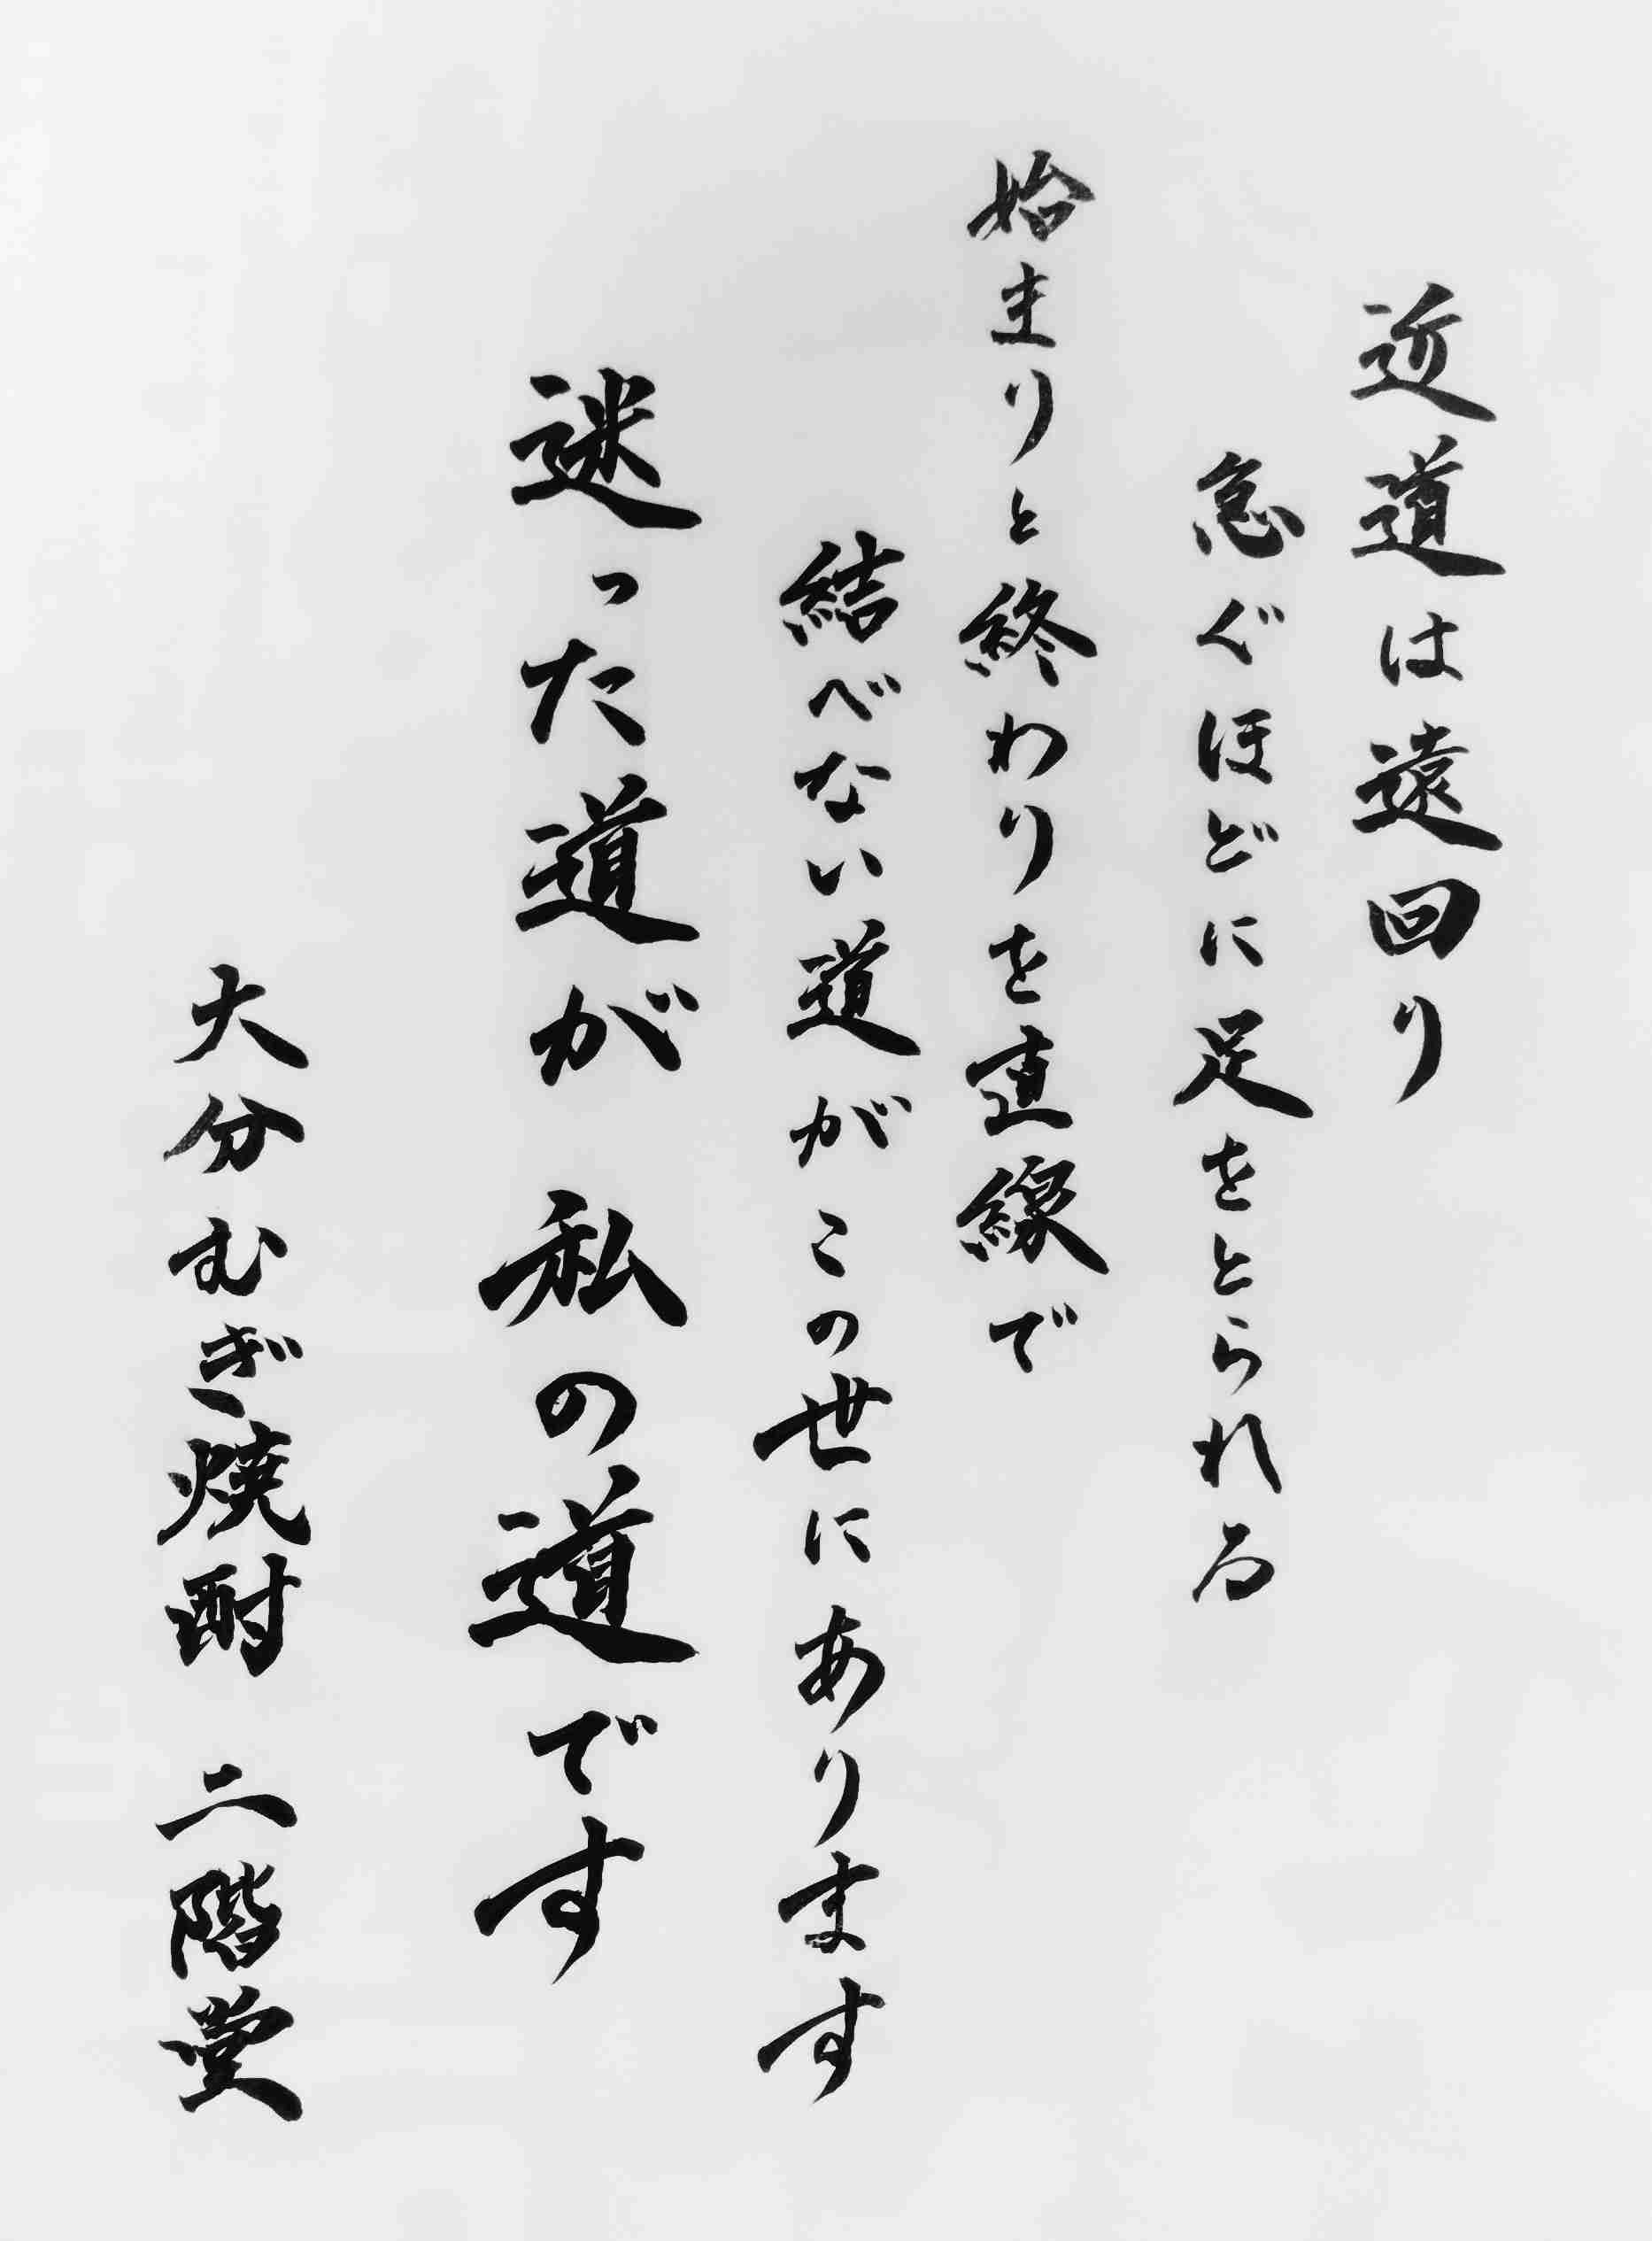 近道は遠回り
急ぐほどに足をとられる
始まりと終わりを直線で
結べない道が この世にあります
迷った道が 私の道です
大分むぎ焼酎 二階堂